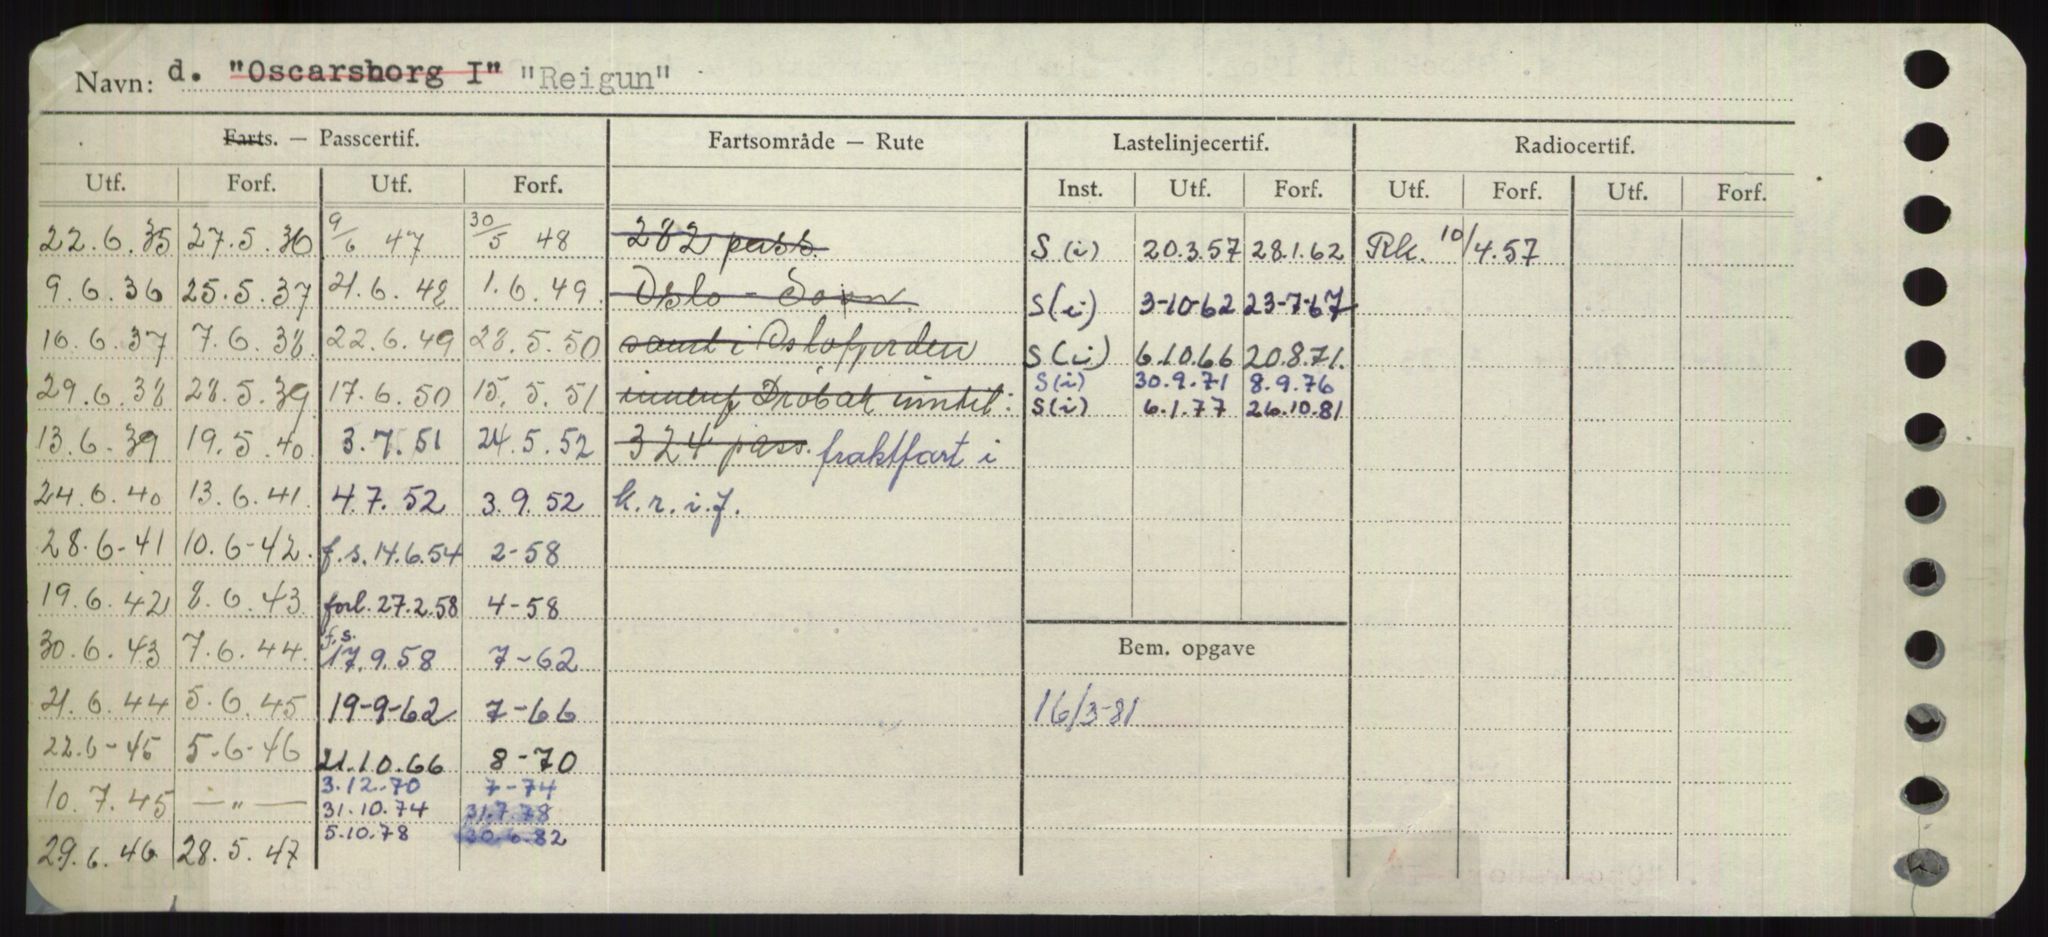 Navn: d. "Oscarsborg I" "Reigun"
Farts. — Passcertif. Fartsområde — Rute Lastelinjecertif. Radiocertif.
Utf. Forf. Utf. Forf. Inst. Utf. Forf. Utf. Forf. Utf. Forf.
22.6.35 27.5.36 9/6 47 30/5 48 282 pass. S(i) 20.3.57 28.1.62 Rk. 10/4.57
9.6.36 25.5.37 21.6.48 1.6.49. Oslo - Son S(i) 3-10-62 23-7-67
16.6.37 7.6.38 22.6.49 28.5.50 samt i Oslofjorden S(i) 6.10.66 20.8.71.
29.6.38 28.5.39 17.6.50 15.5.51 innenf Drøbak inntil: S(i) 30.9.71 8.9.76
S(i) 6.1.77 26.10.81
13.6.39 19.5.40 3.7.51 24.5.52 324 pass. fraktfart i
24.6.40 13.6.41 4.7.52 3.9.52 k.r.i.f.
28.6-41 10.6-42. f.s.14.6.54 2-58
19.6.42 8.6.43 forl.27.2.58 4-58
30.6.43 7.6.44. f.s. 17.9.58 7-62 Bem. opgave
21.6.44 5.6.45 19-9-62 7-66 16/3-81
22.6-45 5.6-46 21.10.66 8-70
10.7.45 — " — 3.12.70 7-74
31.10.74 31.7.78
29.6.46 28.5.47 5.10.78 30.6.82